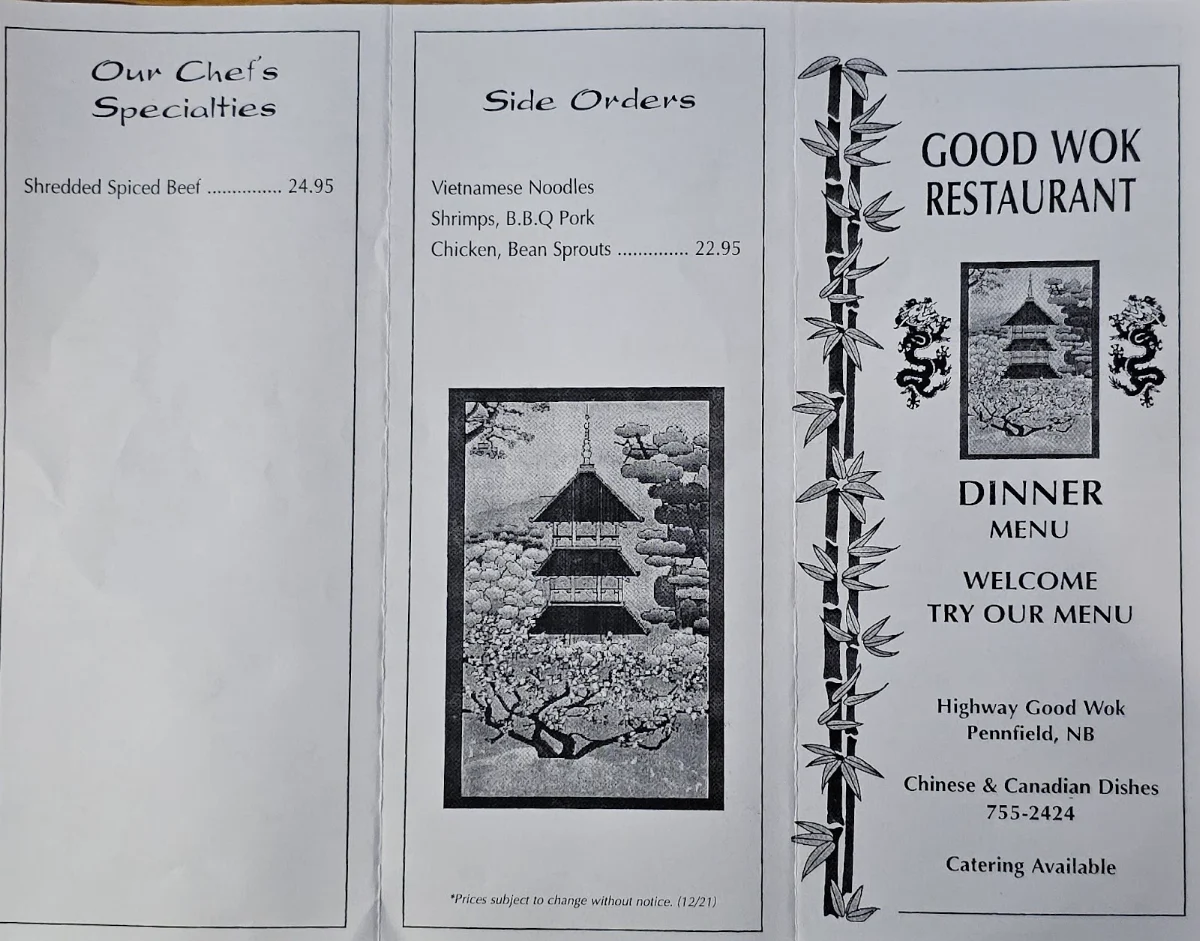 Our Chef's
Specialties
Shredded Spiced Beef ............... 24.95
Side Orders
Vietnamese Noodles
Shrimps, B.B.Q Pork
Chicken, Bean Sprouts .............. 22.95
*Prices subject to change without notice. (12/21)
GOOD WOK
RESTAURANT
DINNER
MENU
WELCOME
TRY OUR MENU
Highway Good Wok
Pennfield, NB
Chinese & Canadian Dishes
755-2424
Catering Available